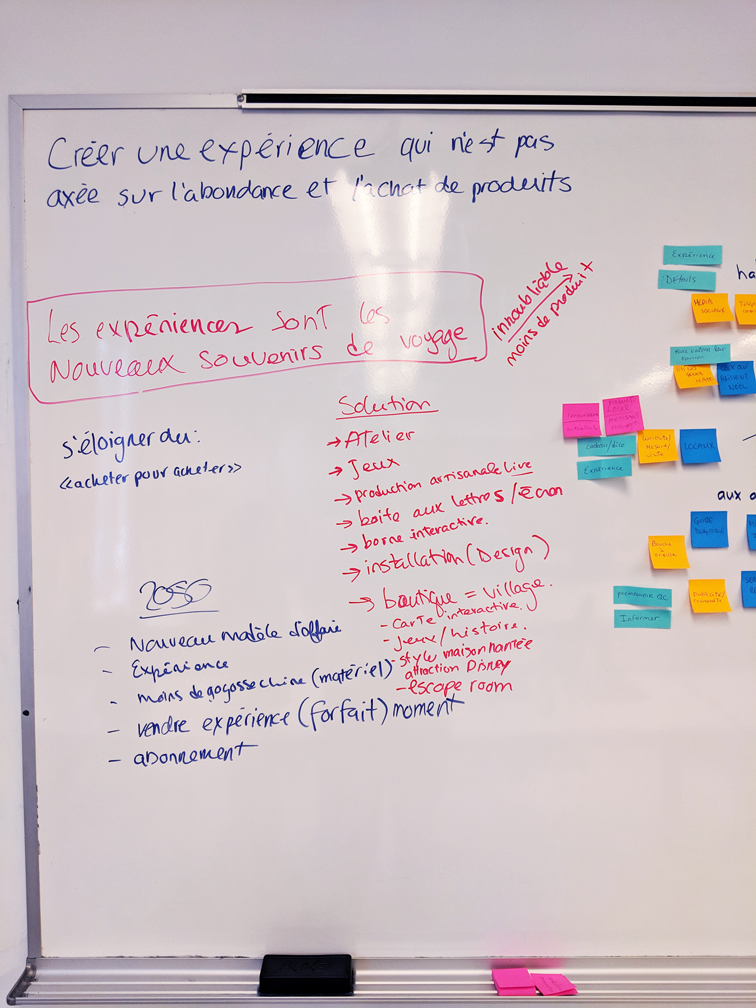 Créer une expérience qui n'est pas
axée sur l'abondance et l'achat de produits
Les expériences sont les
Nouveaux souvenirs de voyage
inoubliable
moins de produit
s'éloigner du:
«acheter pour acheter»
Solution
→ Atelier
→ Jeux
→ production artisanale Live
→ boite aux lettres / Écran
→ borne interactive.
→ installation (Design)
→ boutique = village.
- carte interactive.
- jeux / histoire.
- style maison hantée
attraction Disney
- escape room
2050
- Nouveau modèle d'affaire
- Expérience
- moins de gogosse chine (matériel)
- vendre expérience (forfait) moment
- abonnement
Expérience
Détails
ha
MÉDIA
SOCIAUX
LOCAUX
Expérience
aux
GUIDE
Bouche
à
oreille
Promouvoir QC
Informer
Publicité/